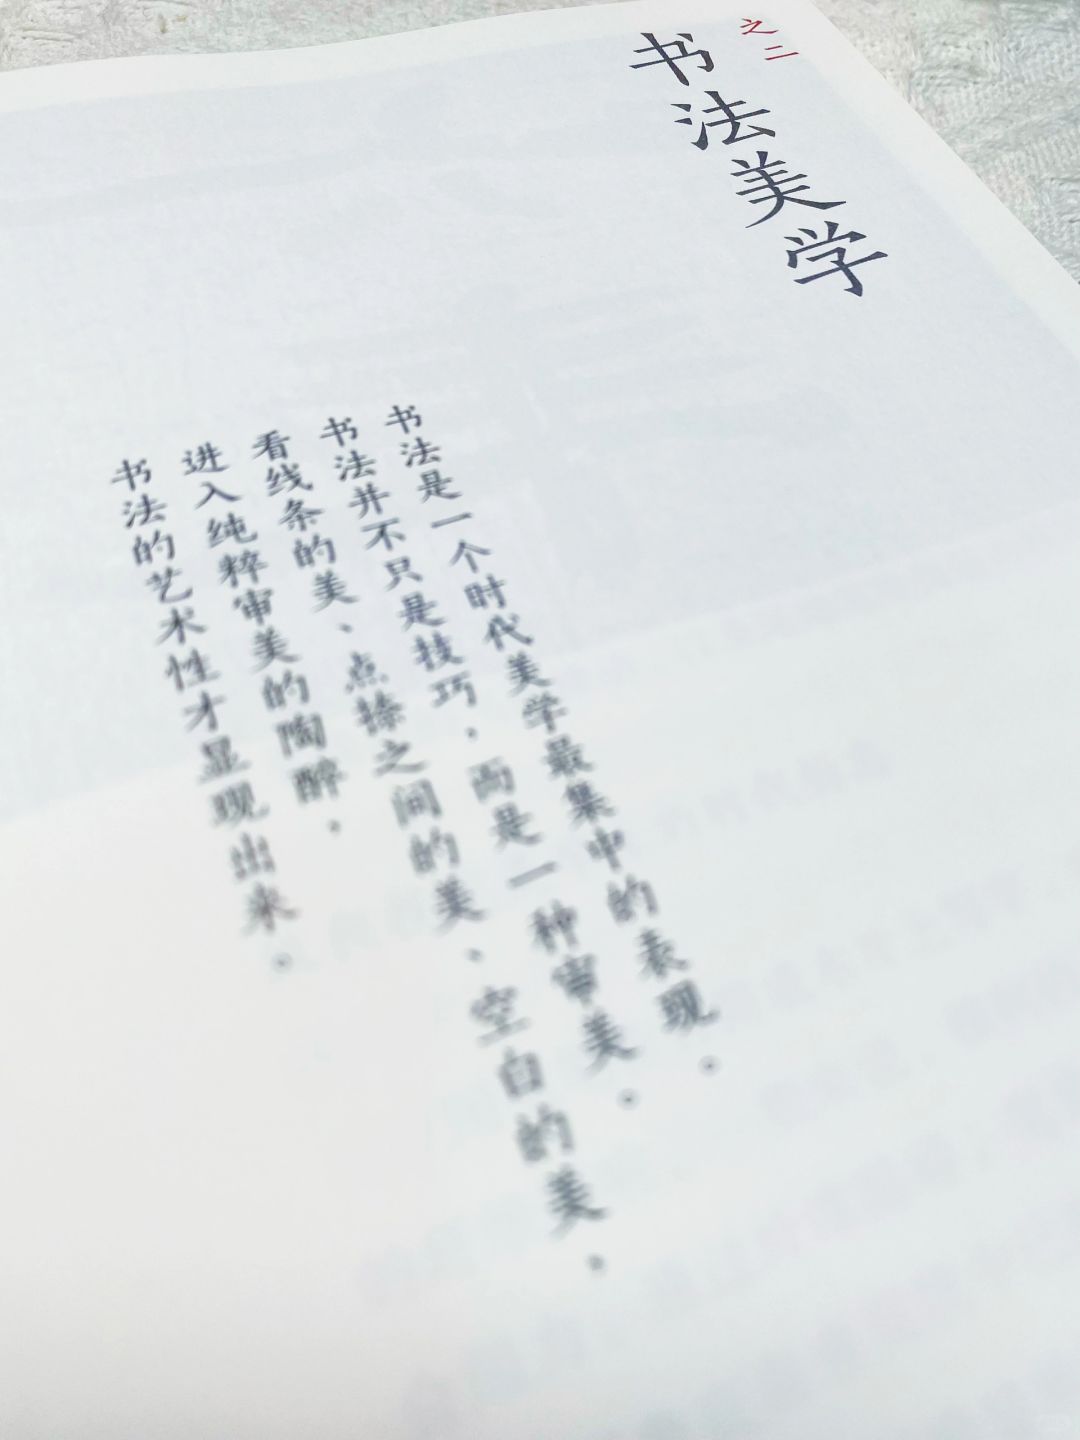 之二
书法美学
书法是一个时代美学最集中的表现。
书法并不只是技巧，而是一种审美。
看线条的美、点捺之间的美、空白的美、
进入纯粹审美的陶醉，
书法的艺术性才显现出来。